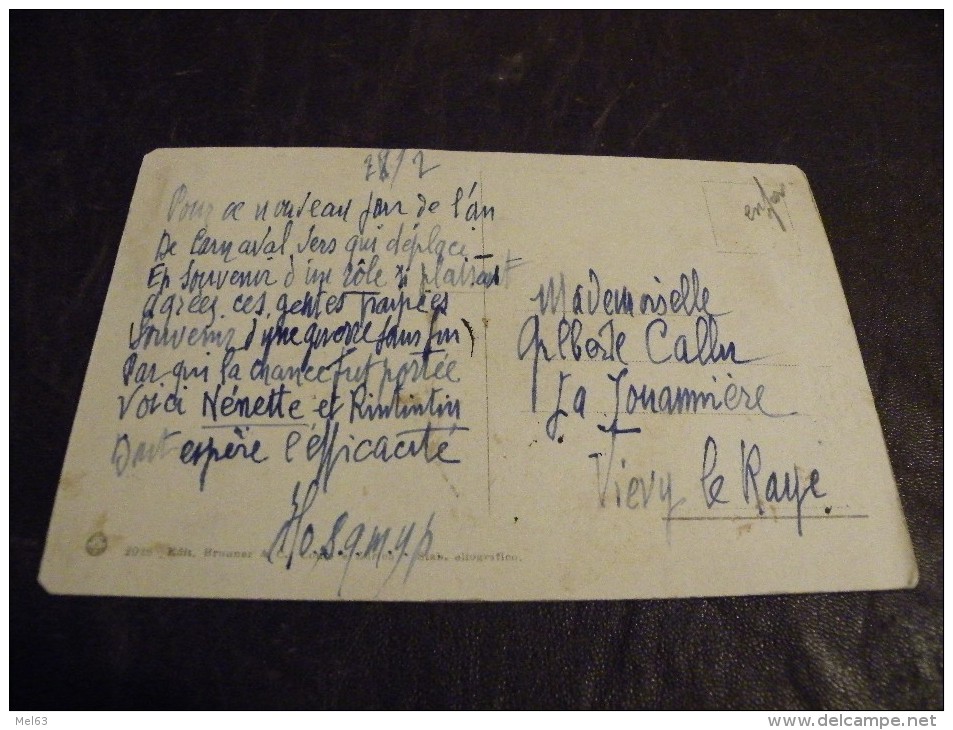 28/2
Pour ce nouveau jour de l'an
De Carnaval vers qui déplacé
En souvenir d'un rôle si plaisant
agrées ces gentes poupées
Souvenir d'une guerre sans fin
Par qui la chance fut portée
Voici Nénette et Rintintin
Dont espère l'efficacité
2028 Edit. Brunner & C.
Stab. eliografico.
Mademoiselle
Gilberte Callu
La Touannière
Viévy le Rayé
Mel63
www.delcampe.net